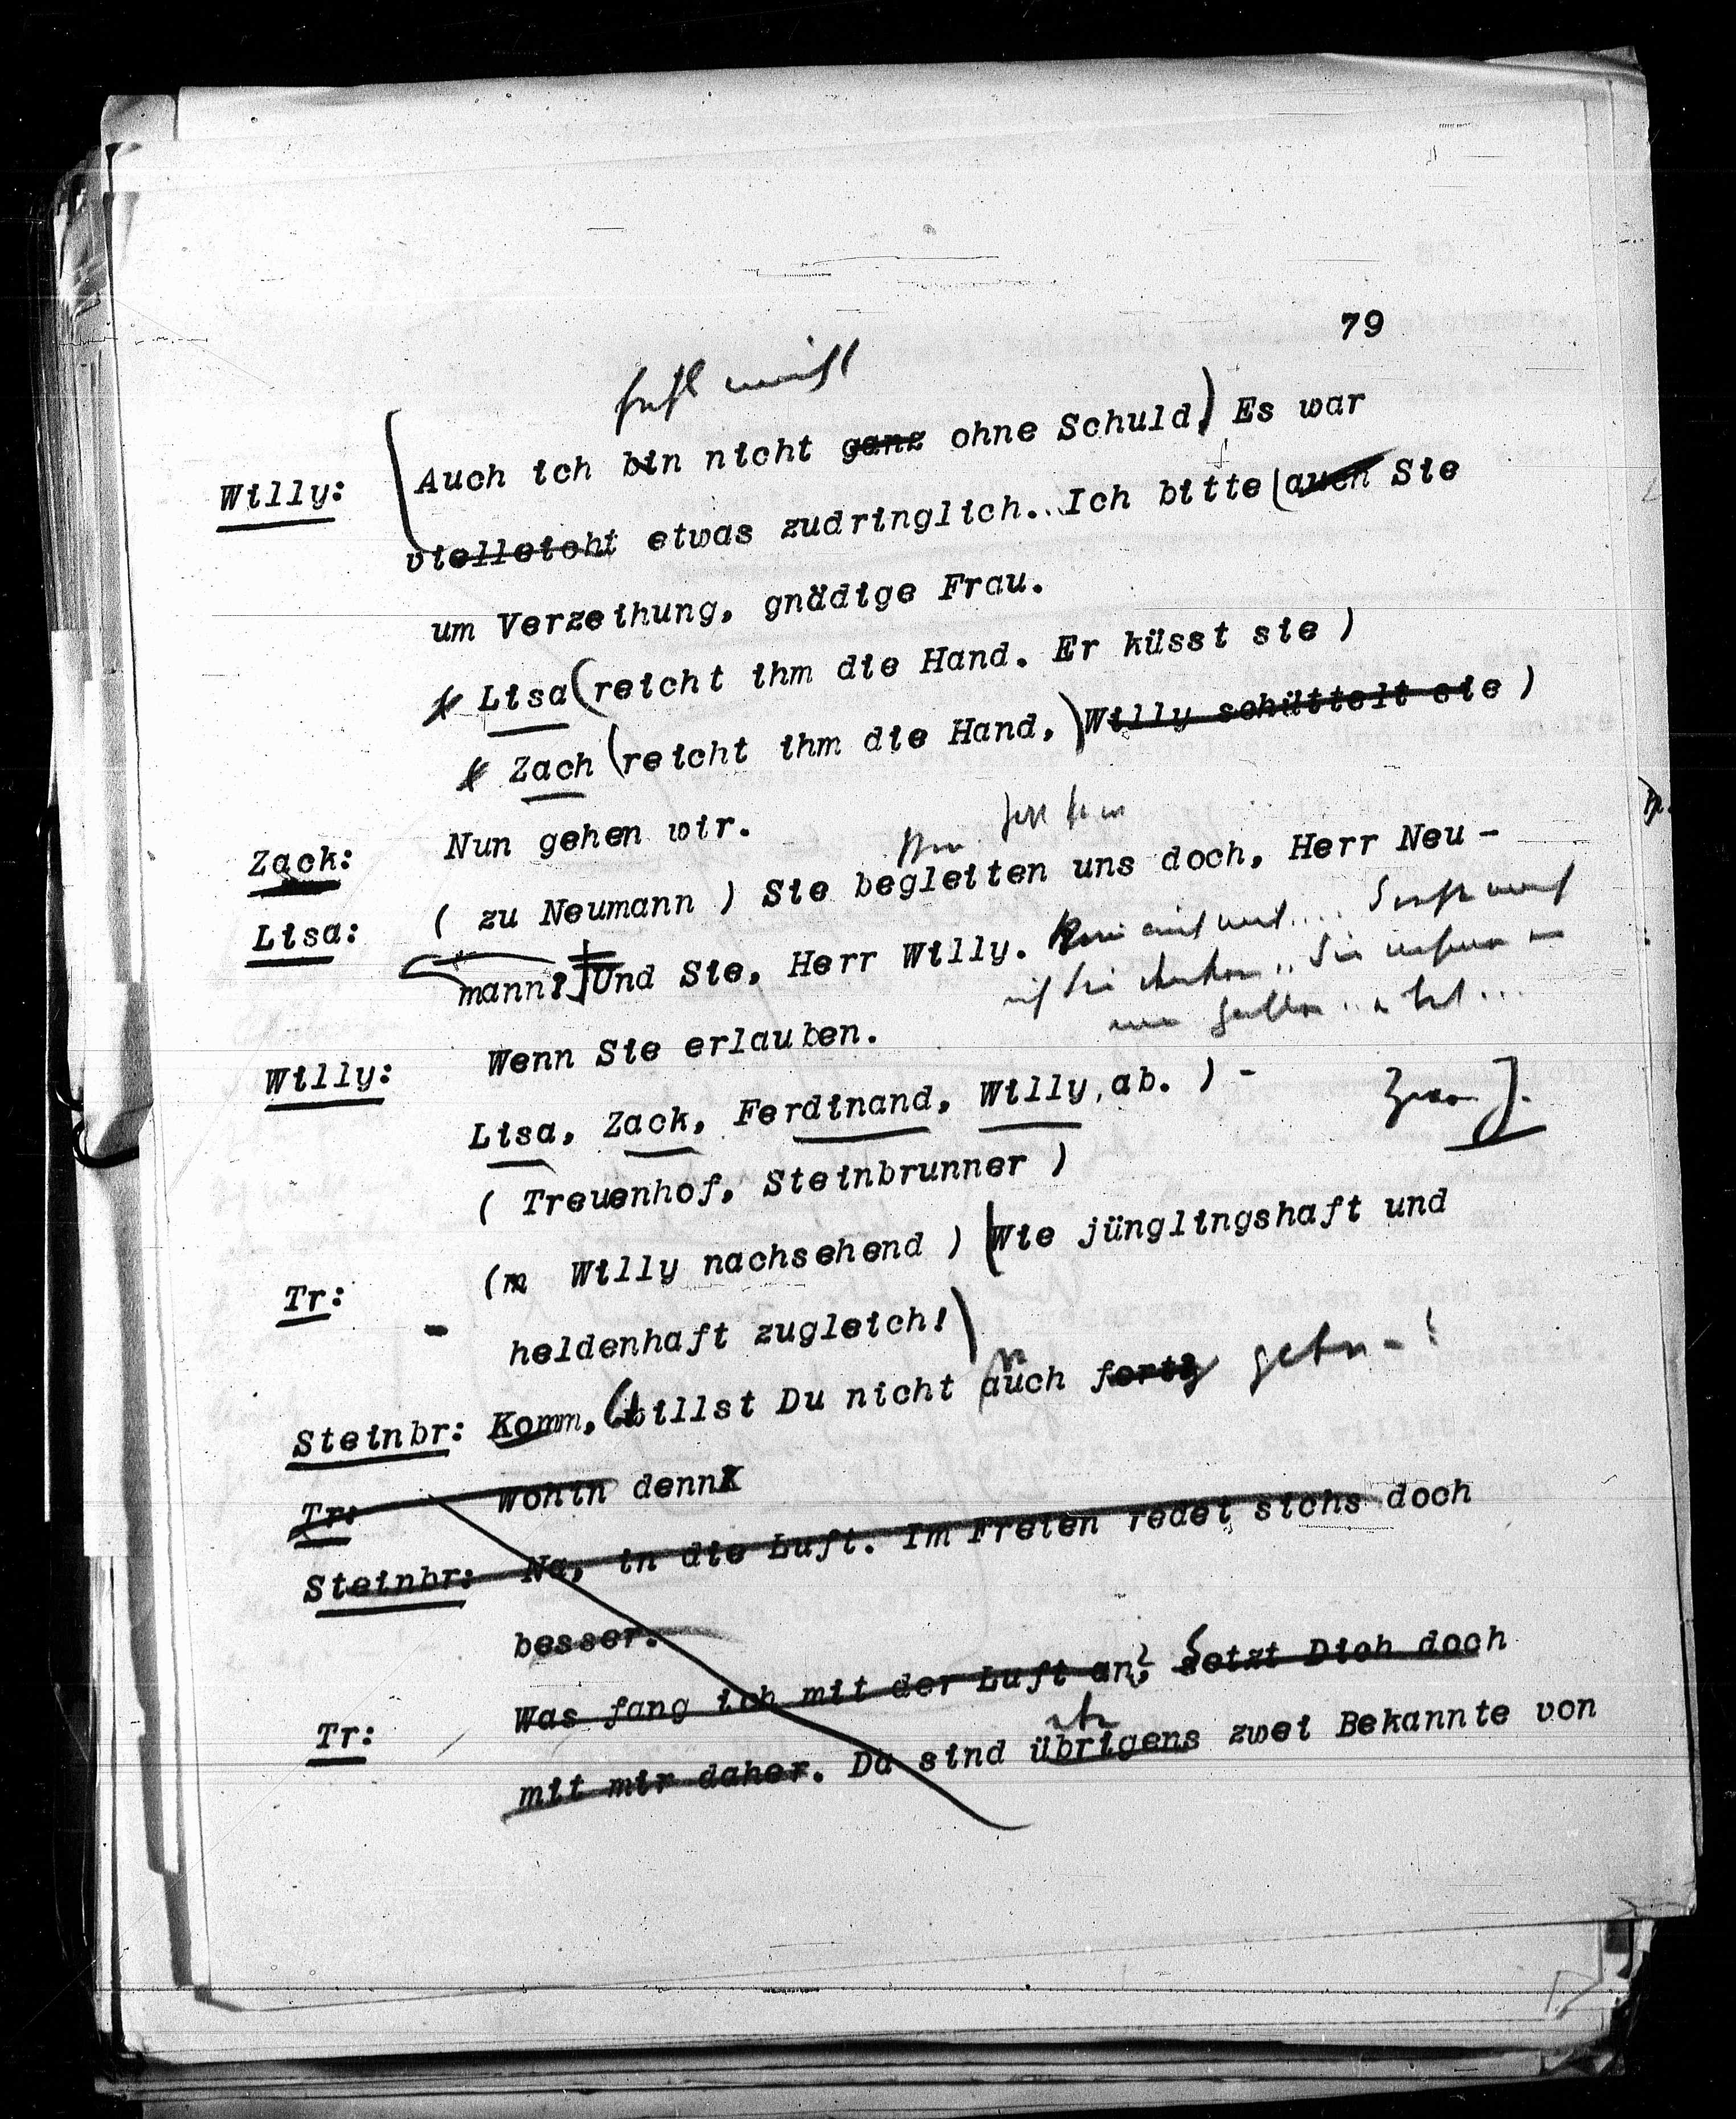 79
Willy: (Auch ich bin nicht ganz ohne Schuld) Es war
vielleicht etwas zudringlich. Ich bitte (auch Sie
um Verzeihung, gnädige Frau.
Lisa (reicht ihm die Hand. Er küsst sie )
Zach (reicht ihm die Hand,) Willy schüttelt sie )
Zack: Nun gehen wir.
Lisa: ( zu Neumann ) Sie begleiten uns doch, Herr Neu -
mann? Und Sie, Herr Willy.
Willy: Wenn Sie erlauben.
Lisa, Zack, Ferdinand, Willy, ab. ) -
( Treuenhof, Steinbrunner )
Tr: (m Willy nachsehend ) (Wie jünglingshaft und
heldenhaft zugleich!)
Steinbr: Komm, (willst Du nicht auch fort? gehn - !
Tr: Wohin denn
Steinbr: Na, in die Luft. Im Freien redet sichs doch
besser.
Tr: Was fang ich mit der Luft an? Setzt Dich doch
mit mir daher. Da sind übrigens zwei Bekannte von